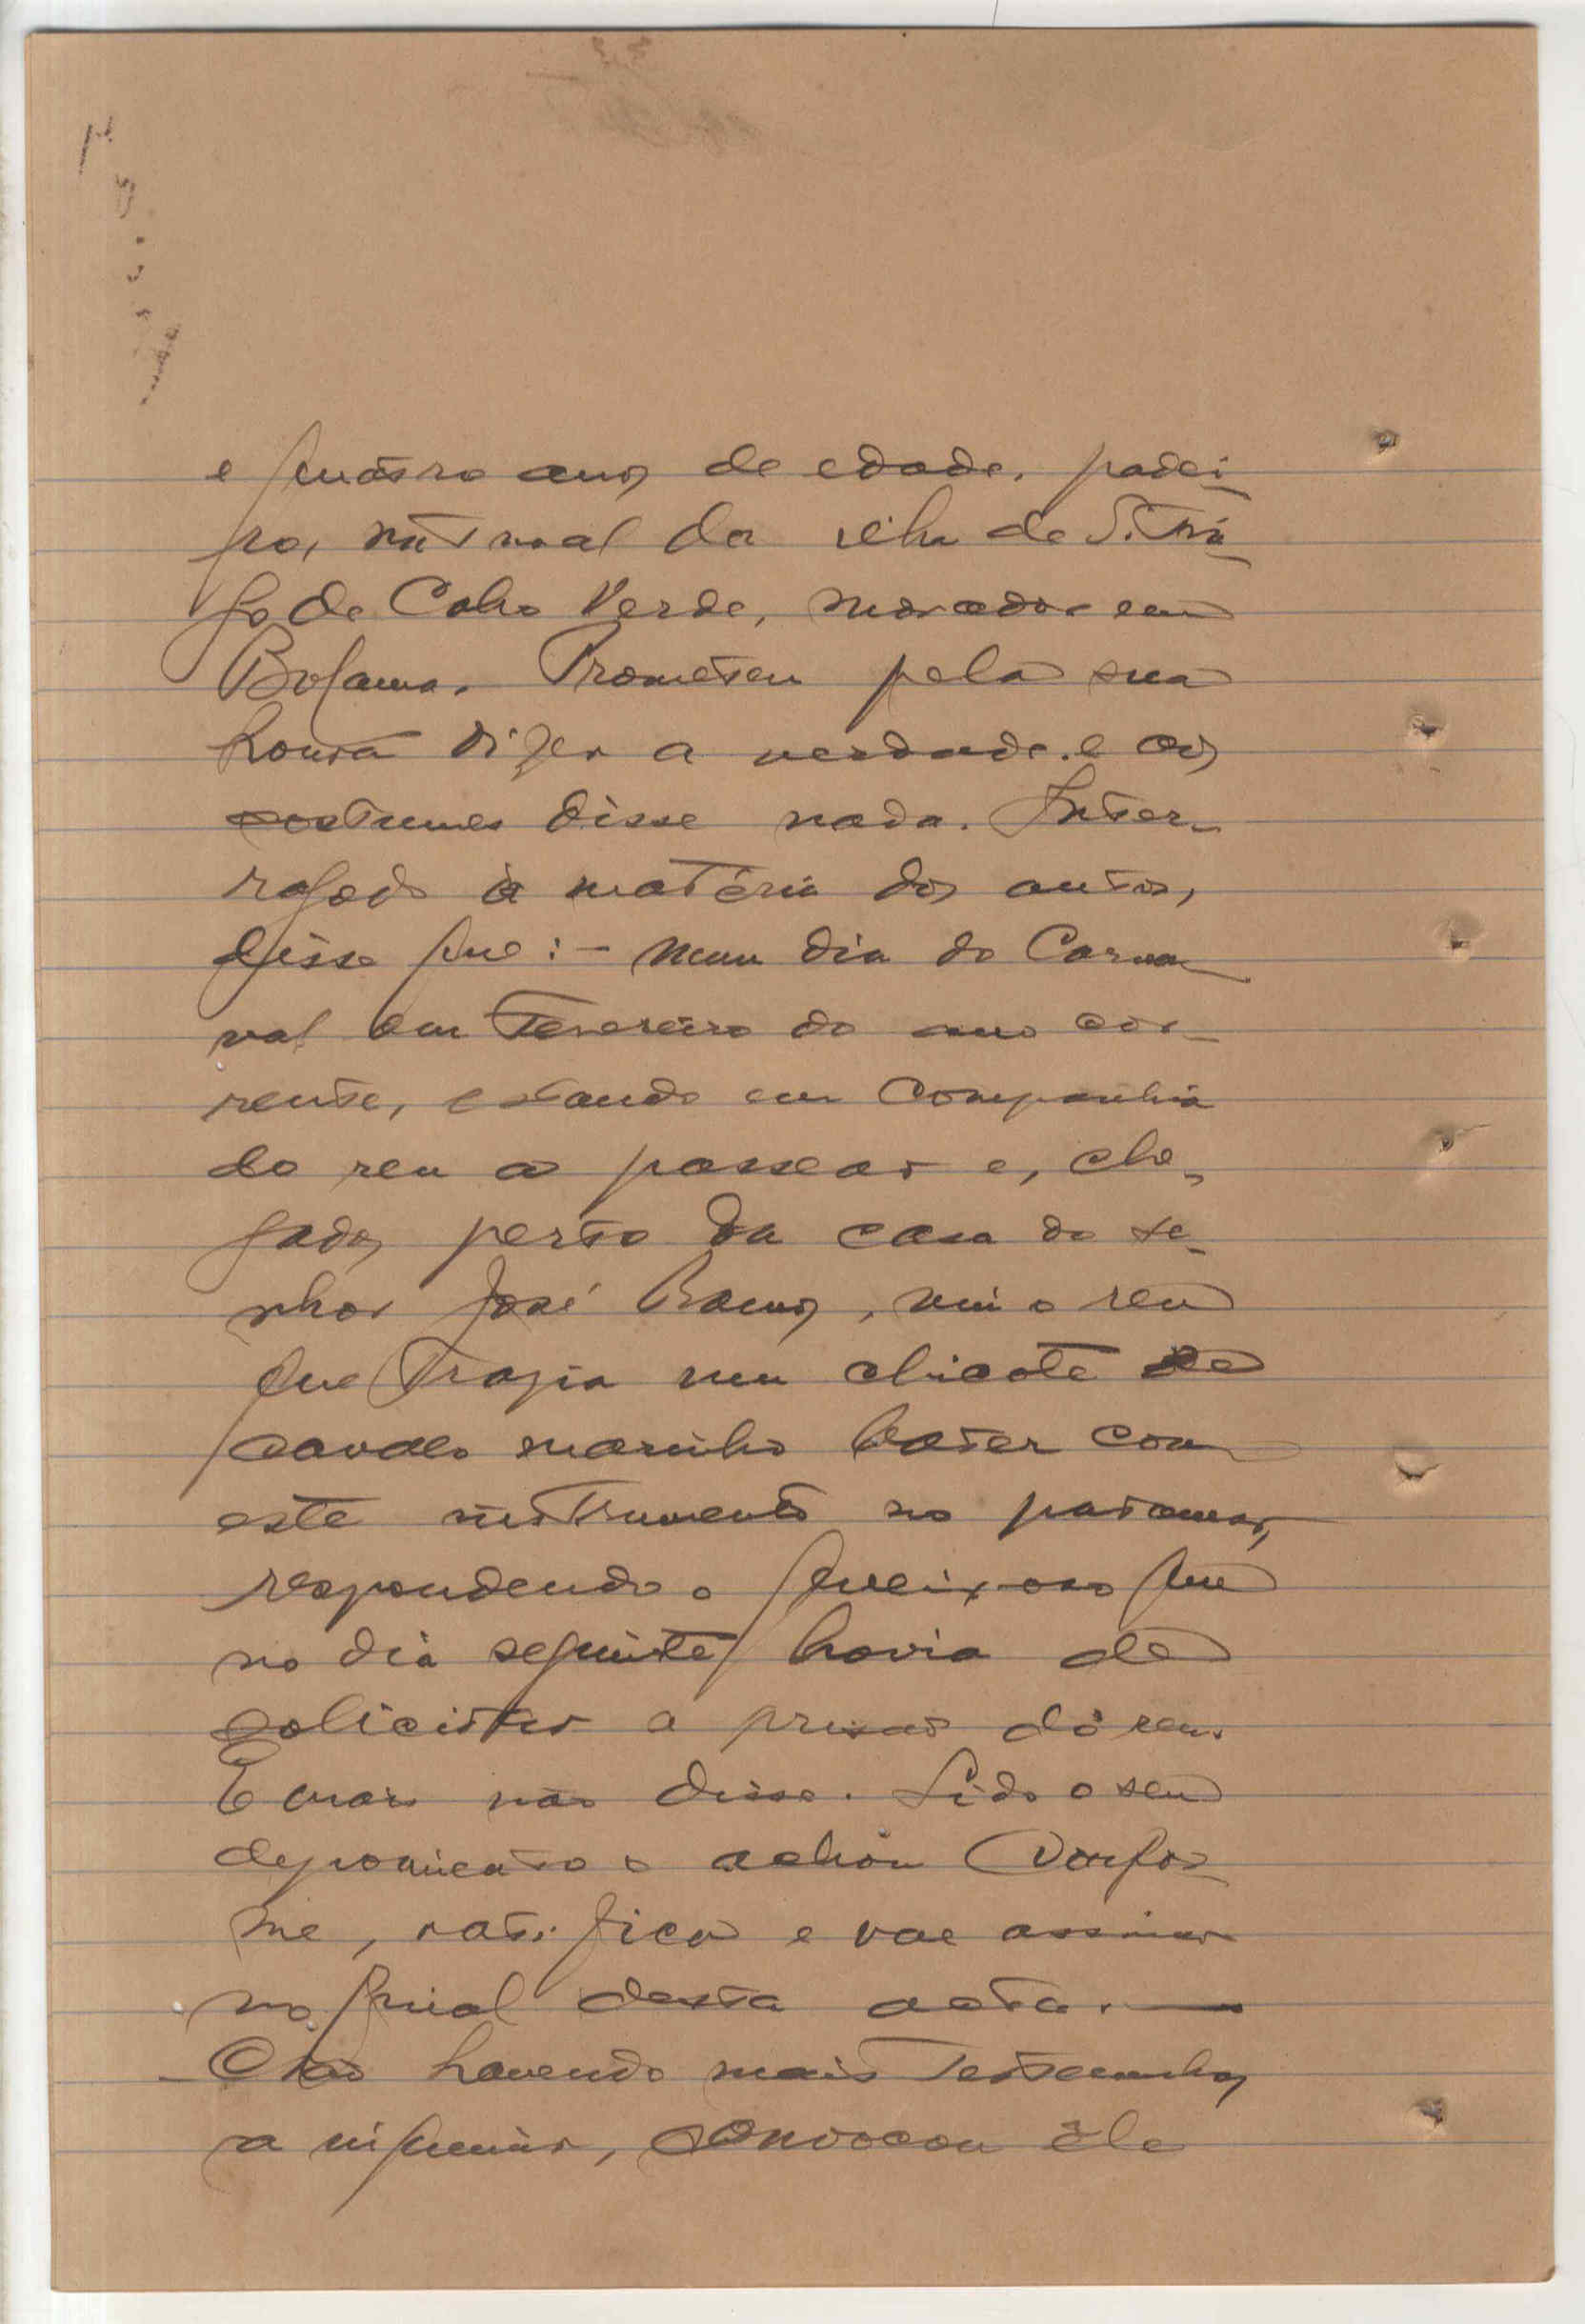 e quatro anos de edade, padei-
ro, natural da ilha de S. Tia-
go de Cabo Verde, morador em
Bolama. Prometeu pela sua
honra dizer a verdade e aos
costumes disse nada. Inter-
rogado á matéria dos autos,
disse que:- num dia do Carna-
val em Fevereiro do ano cor-
rente, estando em companhia
do reu a passear e, che-
gados perto da casa do se-
nhor José Ramos, viu o reu
que trazia um chicote de
cavalo marinho bater com
este instrumento no
respondendo o queixoso que
no dia seguinte havia de
solicitar a prisão do reu.
E mais não disse. Lido o seu
depoimento o achou confor-
me, ratifica e vae assinar
no final desta acta.—
Não havendo mais testemunhas
a inquirir, convocou êle